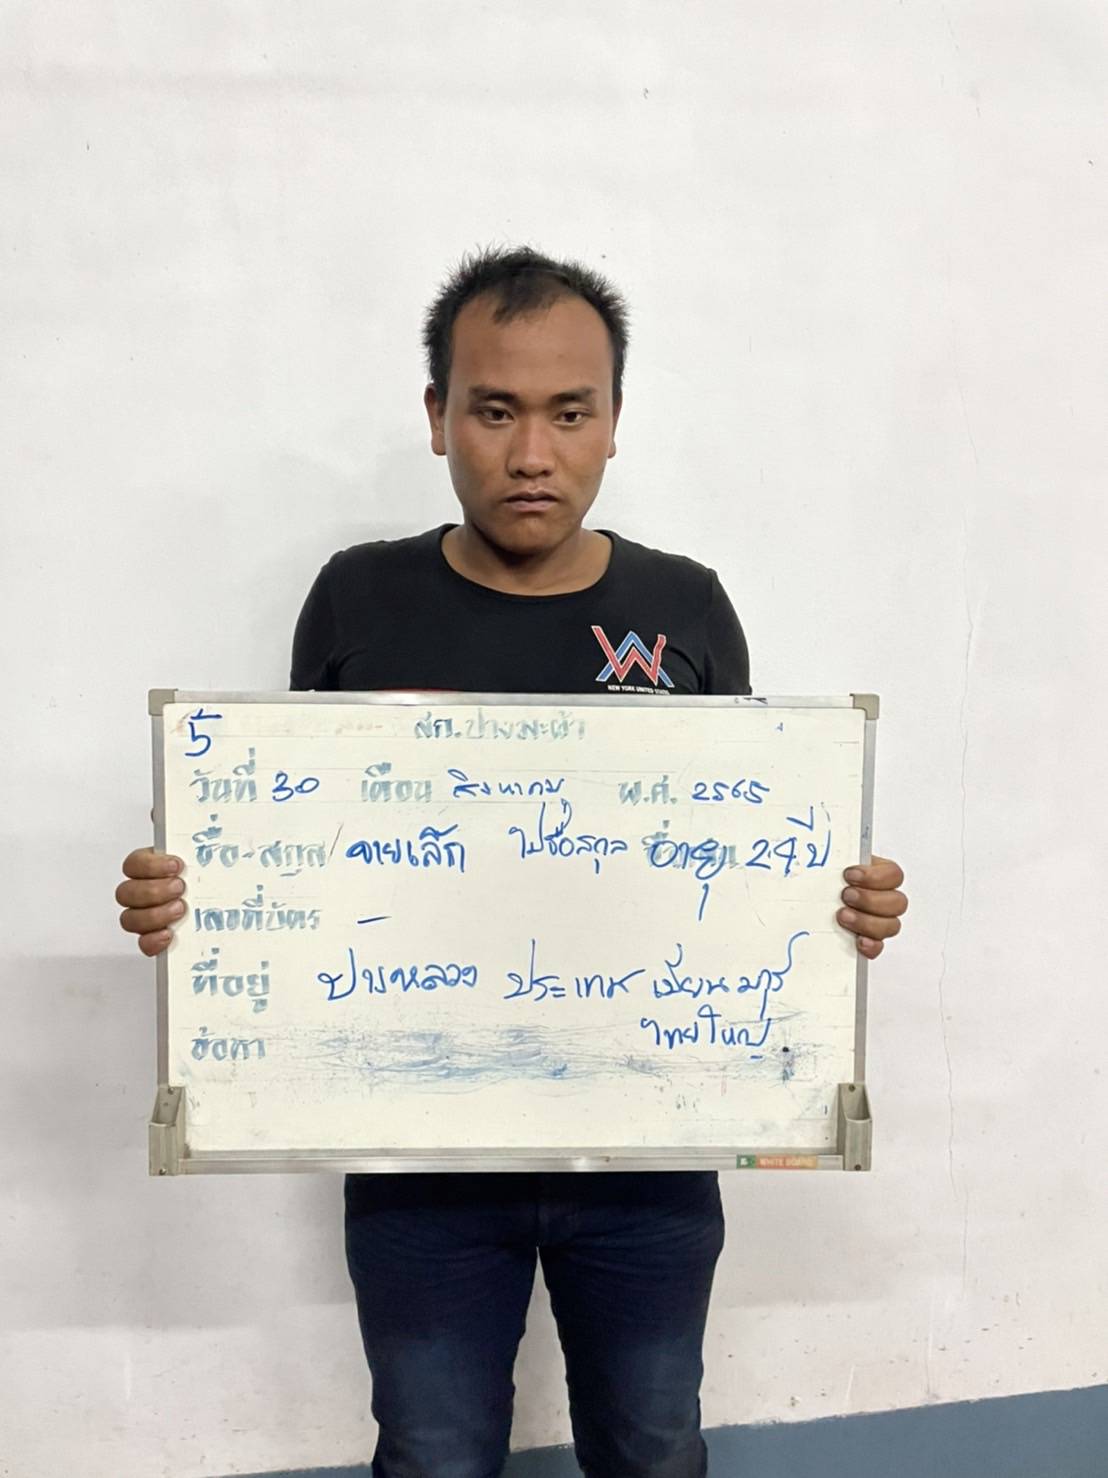 W
NEW YORK UNITED STATES
5
สภ.ปางมะผ้า
วันที่ 30 เดือน สิงหาคม พ.ศ. 2565
ชื่อ-สกุล/ จายเล็ก ไม่ชื่อสกุล อายุ 24 ปี
เลขที่บัตร -
ที่อยู่ ปางหลวง ประเทศ เมียนมาร์
ไทยใหญ่
ข้อหา
WHITE BOARD